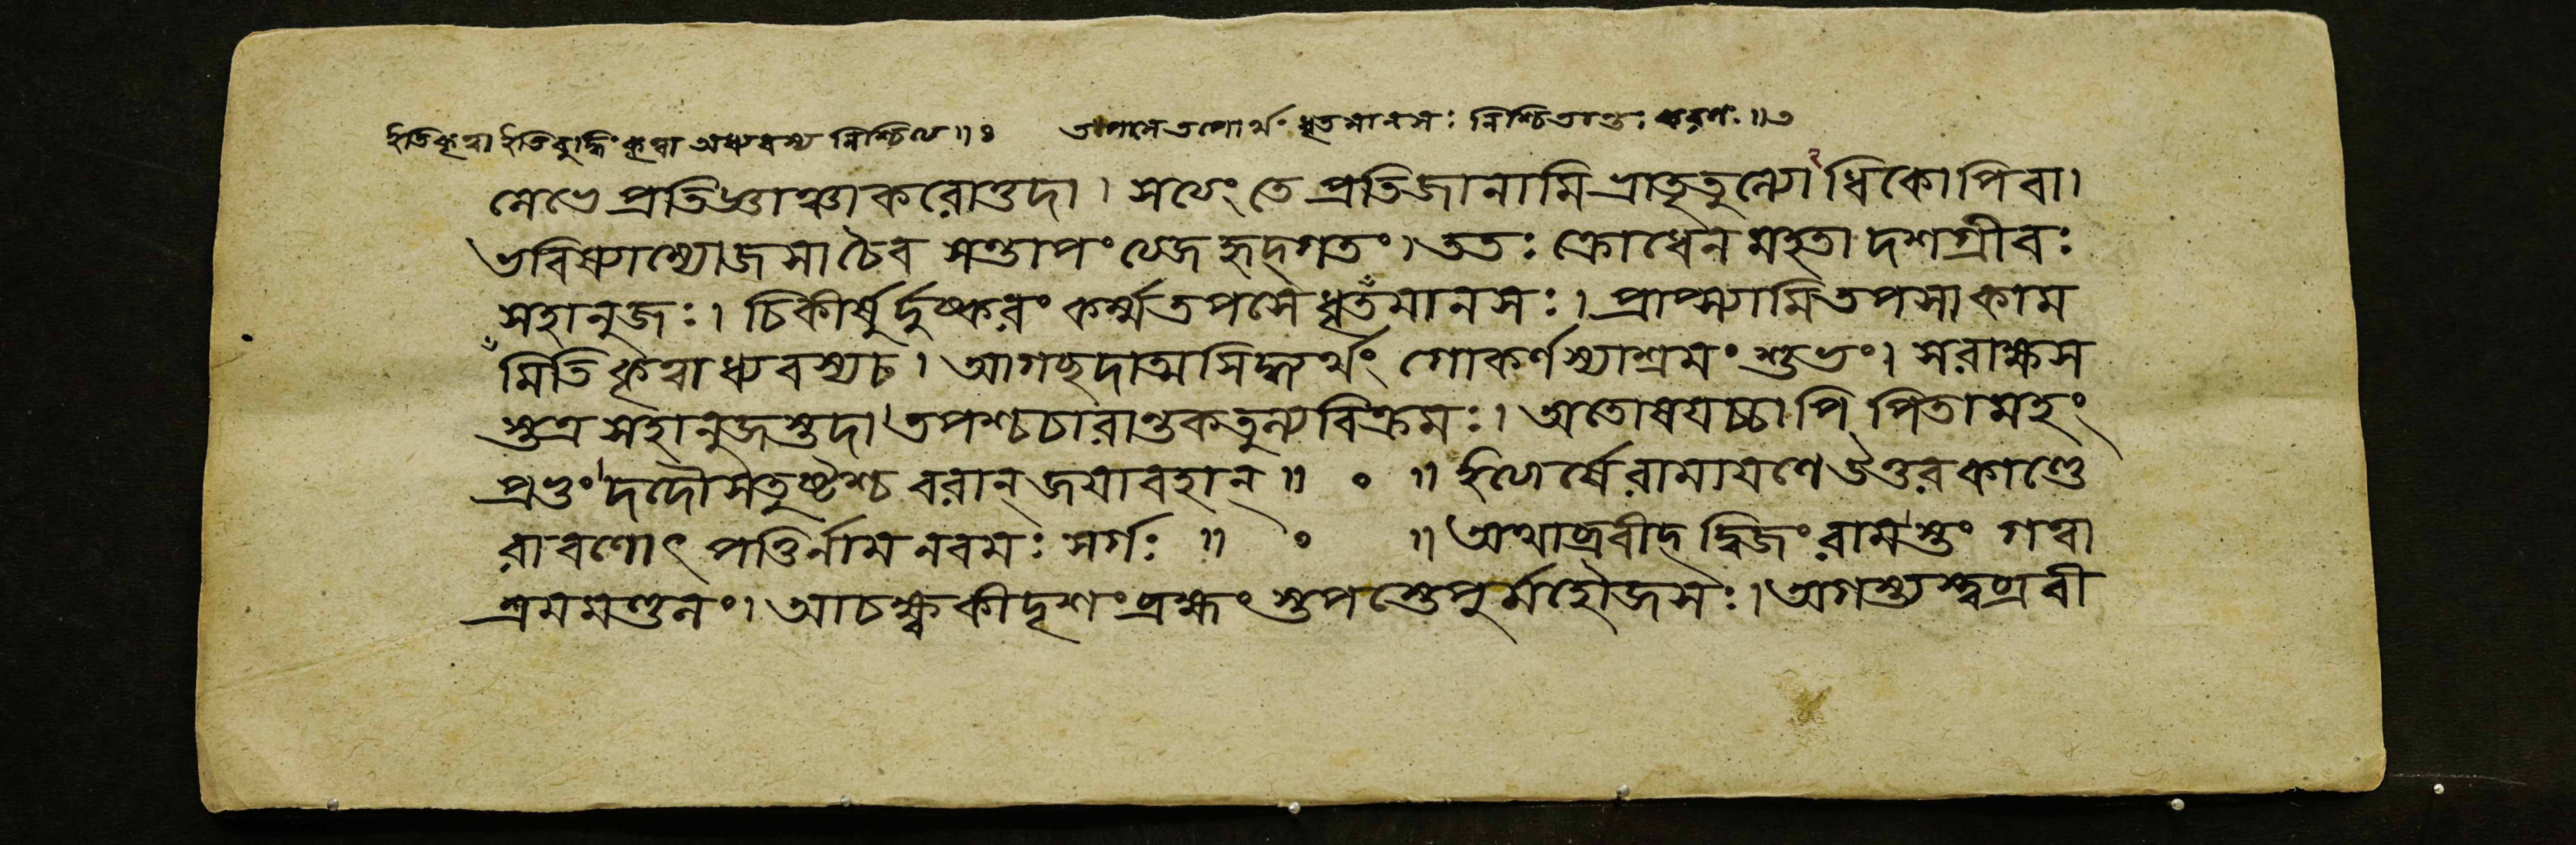 ইতিকৃত্বা ইতিবুদ্ধিং কৃত্বা অধ্যবস্য নিশ্চিত্য ॥ ঃ তপসে তপোর্থং ধৃতমানসঃ নিশ্চিতান্তঃ করণঃ ॥ ৩
লেভে প্রতিজ্ঞাঞ্চাকরোত্তদা । সত্যং তে প্রতিজানামি ভ্রাতৃতুল্যোধিকোপিবা ।
ভবিষ্যাম্যোজসা চৈব সন্তাপং ত্যজ হৃদ্গতং । ততঃ ক্রোধেন মহতা দশগ্রীবঃ
সহানুজঃ । চিকীর্ষুর্দুষ্করং কর্ম্মতপসে ধৃতমানসঃ । প্রাপ্স্যামি তপসা কাম
মিতি কৃত্বাধ্যবস্যচ । আগচ্ছদাত্মসিদ্ধ্যর্থং গোকর্ণস্যাশ্রমং শুভং । সরাক্ষস
স্তত্র সহানুজস্তদা তপশ্চচারান্তকতুল্যবিক্রমঃ । অতোষযচ্চাপি পিতামহং
প্রভুং দদৌ সতুষ্টশ্চ বরান্ জযাবহান্ ॥ ০ ॥ ইত্যার্ষে রামাযণে উত্তরকাণ্ডে
রাবণোৎপত্তির্নাম নবমঃ সর্গঃ ॥ ০ ॥ অথাব্রবীদ্ দ্বিজং রামস্তং গত্বা
শ্রমমণ্ডনং । আচক্ষ্ব কীদৃশং ব্রহ্মং স্তপস্তেপুর্মহৌজসঃ । অগস্ত্যস্ত্বব্রবী